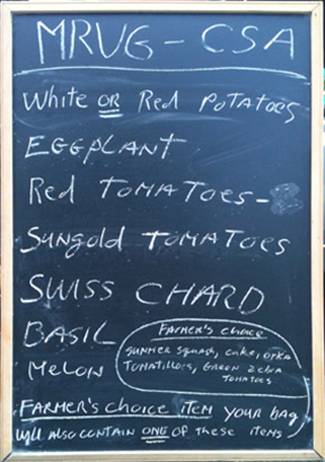 MRUG - CSA
White OR Red POTATOES
EGGPLANT
Red TOMATOES -
Sungold TOMATOES
SWISS CHARD
BASIL
MeLON
FARMER'S CHOICE
SUMMER SQUASH, CUKE, OKRA
TOMATILLOES, GREEN ZEBRA
TOMATOES
FARMER'S CHOICE ITEM YOUR bAG
WILL ALSO CONTAIN ONE OF THESE ITEMS